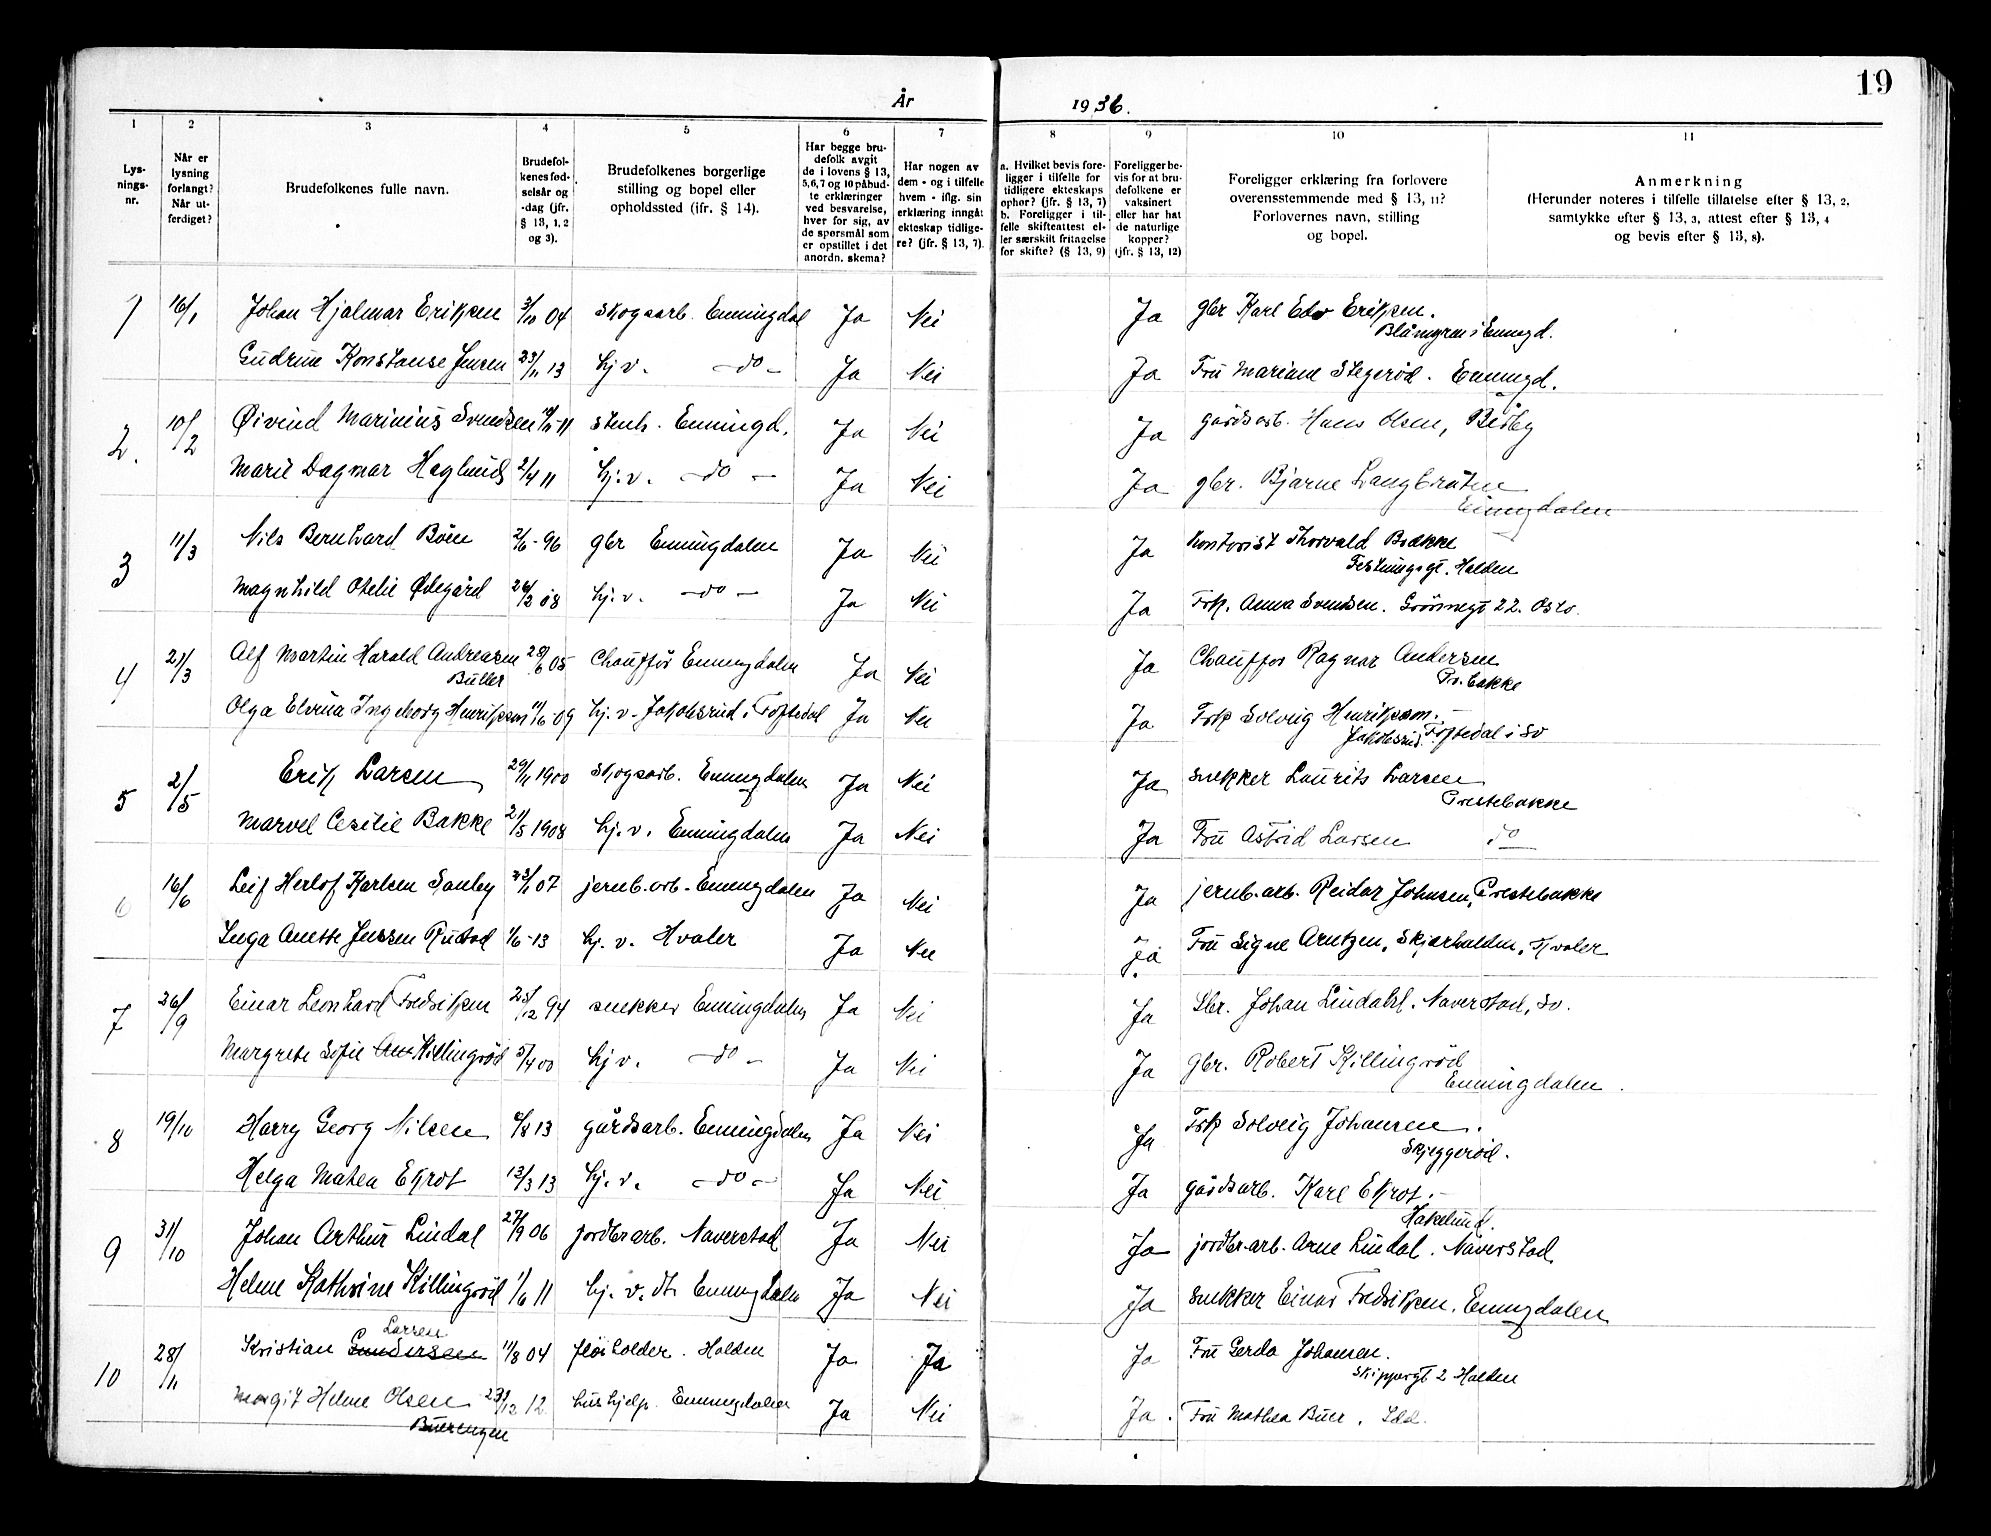 19
År 1936.
1 2 3 4 5 6 7 8 9 10 11
Lys-
nings-
nr.
Når er
lysning
forlangt?
Når ut-
ferdiget?
Brudefolkenes fulle navn.
Brudefol-
kenes fød-
selsår og
-dag (jfr.
§ 13, 1, 2
og 3).
Brudefolkenes borgerlige
stilling og bopel eller
opholdssted (ifr. § 14).
Har begge bru-
defolk avgit
de i lovens § 13,
5,6,7 og 10 påbud-
te erklæringer
ved besvarelse,
hver for sig, av
de spørsmål som
er opstillet i det
anordn. skema?
Har nogen av
dem - og i tilfelle
hvem - iflg. sin
erklæring inngåt
ekteskap tidlige-
re? (jfr. § 13, 7).
a. Hvilket bevis fore-
ligger i tilfelle for
tidligere ekteskaps
ophør? (jfr. § 13, 7)
b. Foreligger i til-
felle skifteattest el-
ler særskilt fritagelse
for skifte? (§ 13, 9)
Foreligger be-
vis for at bru-
defolkene er
vaksinert
eller har hat
de naturlige
kopper?
(jfr. § 13, 12)
Foreligger erklæring fra forlovere
overensstemmende med § 13, 11?
Forlovernes navn, stilling
og bopel.
Anmerkning
(Herunder noteres i tilfelle tillatelse efter § 13, 2,
samtykke efter § 13, 3, attest efter § 13, 4
og bevis efter § 13, 8).
1 16/1 Johan Hjalmar Eriksen 3/10 04 skogsarb. Enningdal Ja Nei Ja gbr Karl Edv Eriksen.
Blåmyren i Enningd.
Gudrun Konstanse Jensen 23/11 13 hj v. -do- Ja Nei Ja Fru Mariane Stegerød. Enningd.
2. 10/2 Øivind Marinius Svendsen 11 stenh. Enningd. Ja Nei Ja gårdsarb. Hans Olsen, Berby
Marie Dagmar Haglund 2/4 11 hj. v. -do- Ja Nei Ja gbr. Bjarne Langbråten
Enningdalen
3 11/3 Nils Bernhard Børn 2/6-96 gbr Enningdalen Ja Nei Ja Kontorist Thorvald Bakke
Festningsgt. Halden
Magnhild Otelie Ødegård 26/2 08 hj. v. -do- Ja Nei Ja Frk. Anna Svendsen. 22. Oslo
4 21/3 Alf Martin Harald Andreasen 28/6 05 Chauffør Enningdalen Ja Nei Ja Chauffør Ragnar Andersen
Buller Pr. bakke
Olga Elvina Ingeborg Henriksson 11/6 09 hj. v. Jakobsrud i Foftedal Ja Nei Ja Frk Solveig Henriksson.
Jakobsrud. Foftedal i Sv
5 2/5 Erik Larsen 29/11 1900 skogsarb. Enningdalen Ja Nei Ja snekker Laurits Larsen
Prestebakke
Marvel Cesilie Bakke 21/5 1908 hj. v. Enningdalen Ja Nei Ja Fru Astrid Larsen do
6 16/6 Leif Herlof Karlsen Sauby 23/1 07 jernb.arb. Enningdalen Ja Nei Ja jernb.arb. Reidar Johnsen, Prestebakke
Inga Anette Jensen Rustad 1/6-13 hj. v. Hvaler Ja Nei Ja Fru Signe Arntzen, Skjærhalden, Hvaler
7 26/9 Einar Leonhard Fredriksen 25/12 94 snekker Enningdalen Ja Nei Ja Gbr. Johan Lindahl. Naverstad, Sv.
Margrete Sofie Killingrød 5/4 00 hj v. -do- Ja Nei Ja gbr. Robert Killingrød
Enningdalen.
8 19/10 Harry Georg Nilsen 6/8 13 gårdsarb. Enningdalen Ja Nei Ja Frk Solveig Johansen.
Skjeggerød.
Helga Matea Ekrot 13/3 13 hj. v. -do- Ja Nei Ja gårdsarb. Karl Ekrot.
Hakelund.
9 31/10 Johan Arthur Lindal 27/9 06 jordbrarb. Naverstad Ja Nei Ja jordbr.arb. Arne Lindal. Naverstad
Helene Kathrine Killingrød 1/6 11 hj. v. Enningdalen Ja Nei Ja snekker Einar Fredriksen. Enningdalen
Larsen
10 28/11 Kristian Gundersen 11/8 04 fløiholder. Halden Ja Ja Ja Fru Gerda Johansen.
Skippergt 2 Halden
Margit Helene Olsen 23/12 12 hushjelp. Enningdalen Ja Nei Ja. Fru Mathea Buer. Idd.
Buerengen